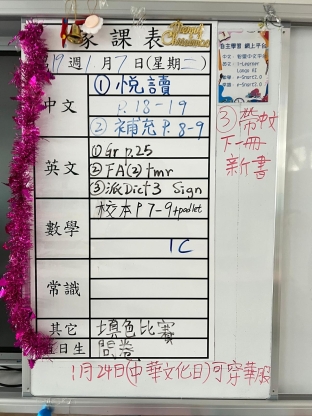 家課表
19週1月7日(星期二)
中文
① 悅讀
P.18-19
② 補充P.8-9
英文
① Gr p.25
② FA(2) tmr
③ 派Dict 3 Sign
數學
校本P7-9+padlet
1C
常識
其它
填色比賽
日生
問卷
③ 帶中文
下一冊
新書
自主學習 網上平台
1月24日(中華文化日)可穿華服